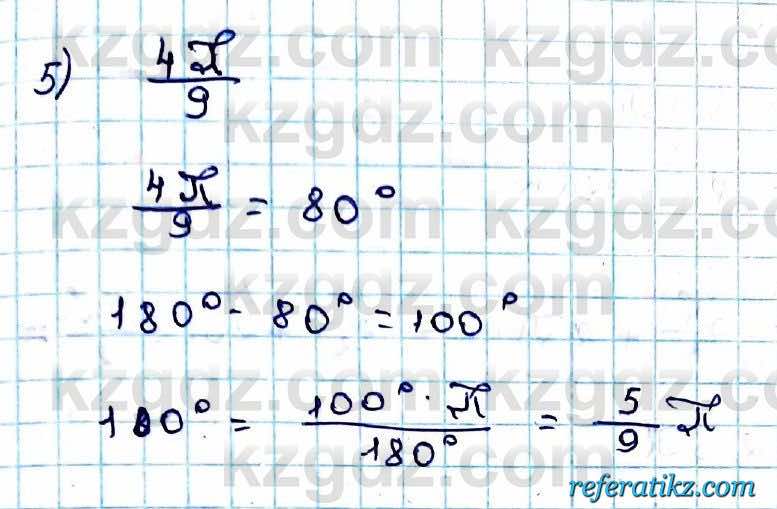 5) 4π/9
4π/9 = 80°
180° - 80° = 100°
100° = 100° · π / 180° = 5/9 π
kzgdz.com kzgdz.com
kzgdz.com
kzgdz.com kzgdz.com
kzgdz.com
kzgdz.com kzgdz.com
kzgdz.com
referatikz.com